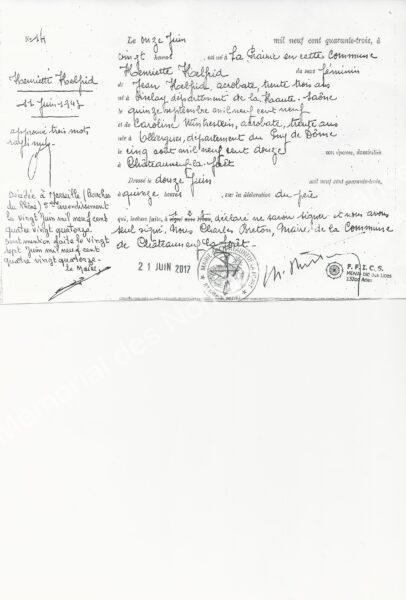 N° 14
Henriette Helfrid
11 Juin 1943
approuvé trois mots
rayés nuls.
Décédée à Marseille (Bouches
du Rhône) 5e arrondissement
le vingt Juin mil neuf cent
quatre vingt quatorze.
Sont mention faite le vingt
sept Juin mil neuf cent
quatre vingt quatorze.
le Maire,
Le onze Juin mil neuf cent quarante-trois, à
vingt heures, est née à La Prairie en cette Commune
Henriette Helfrid du sexe féminin
de Jean Helfrid, acrobate, trente trois ans
né à département de la Haute-Saône
le quinze septembre mil neuf cent neuf
et de Caroline Winterstein, acrobate, trente ans
née à Ollergues, département du Puy de Dôme
le cinq août mil neuf cent douze son épouse, domiciliés
à Châteauneuf-la-Forêt
Dressé le douze Juin mil neuf cent quarante-trois,
à quinze heures, sur la déclaration du père
qui, lecture faite, a déclaré ne savoir signer et nous avons
seul signé, Nous Charles Breton, Maire de la Commune
de Châteauneuf-la-Forêt.
21 JUIN 2017
F.F.I.C.S.
13200 Arles
Mémorial des